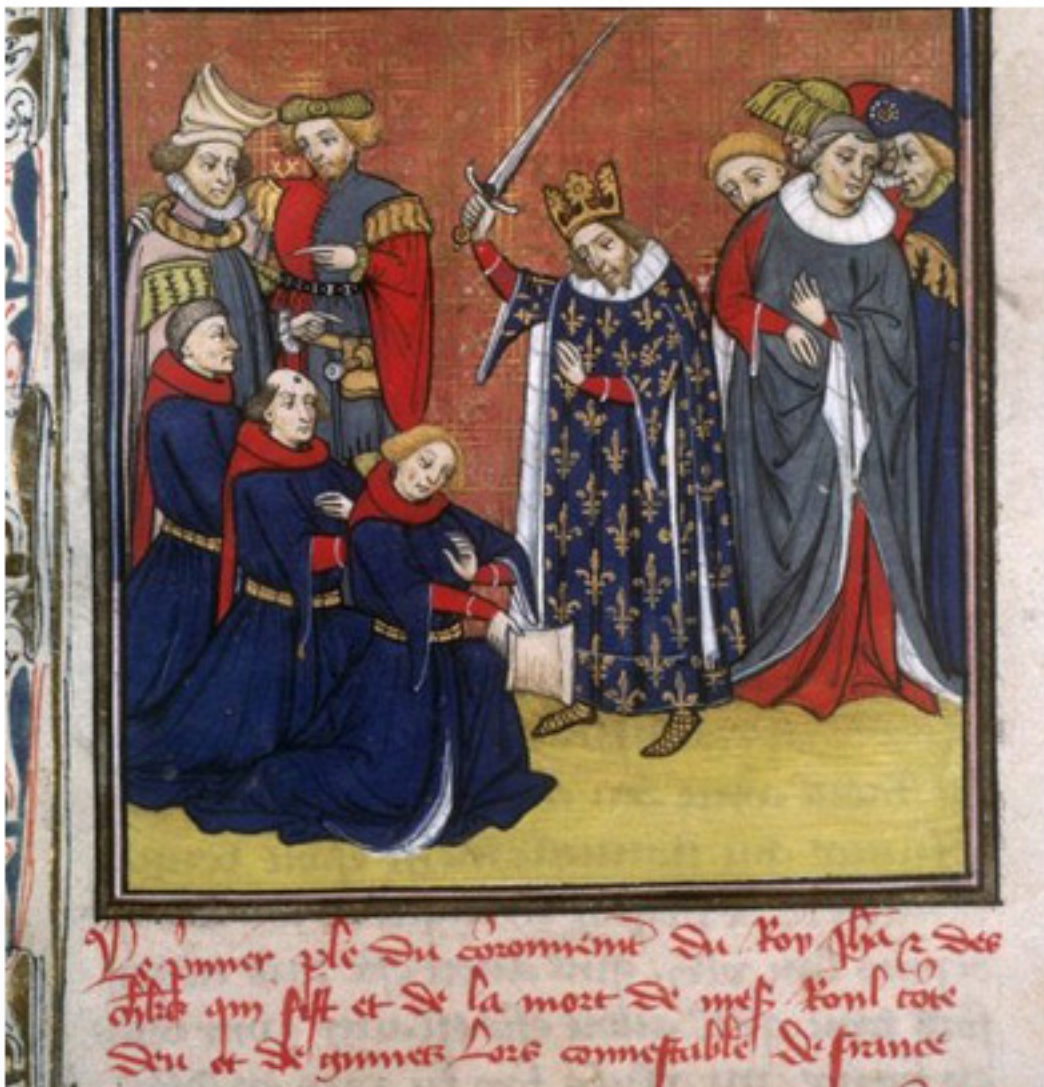 Le pmier ple du coronnemt du Roy Jhā ⁊ des
chlrs qui fist et de la mort de mess Roul cōte
deu et de guines Lors connestable de france